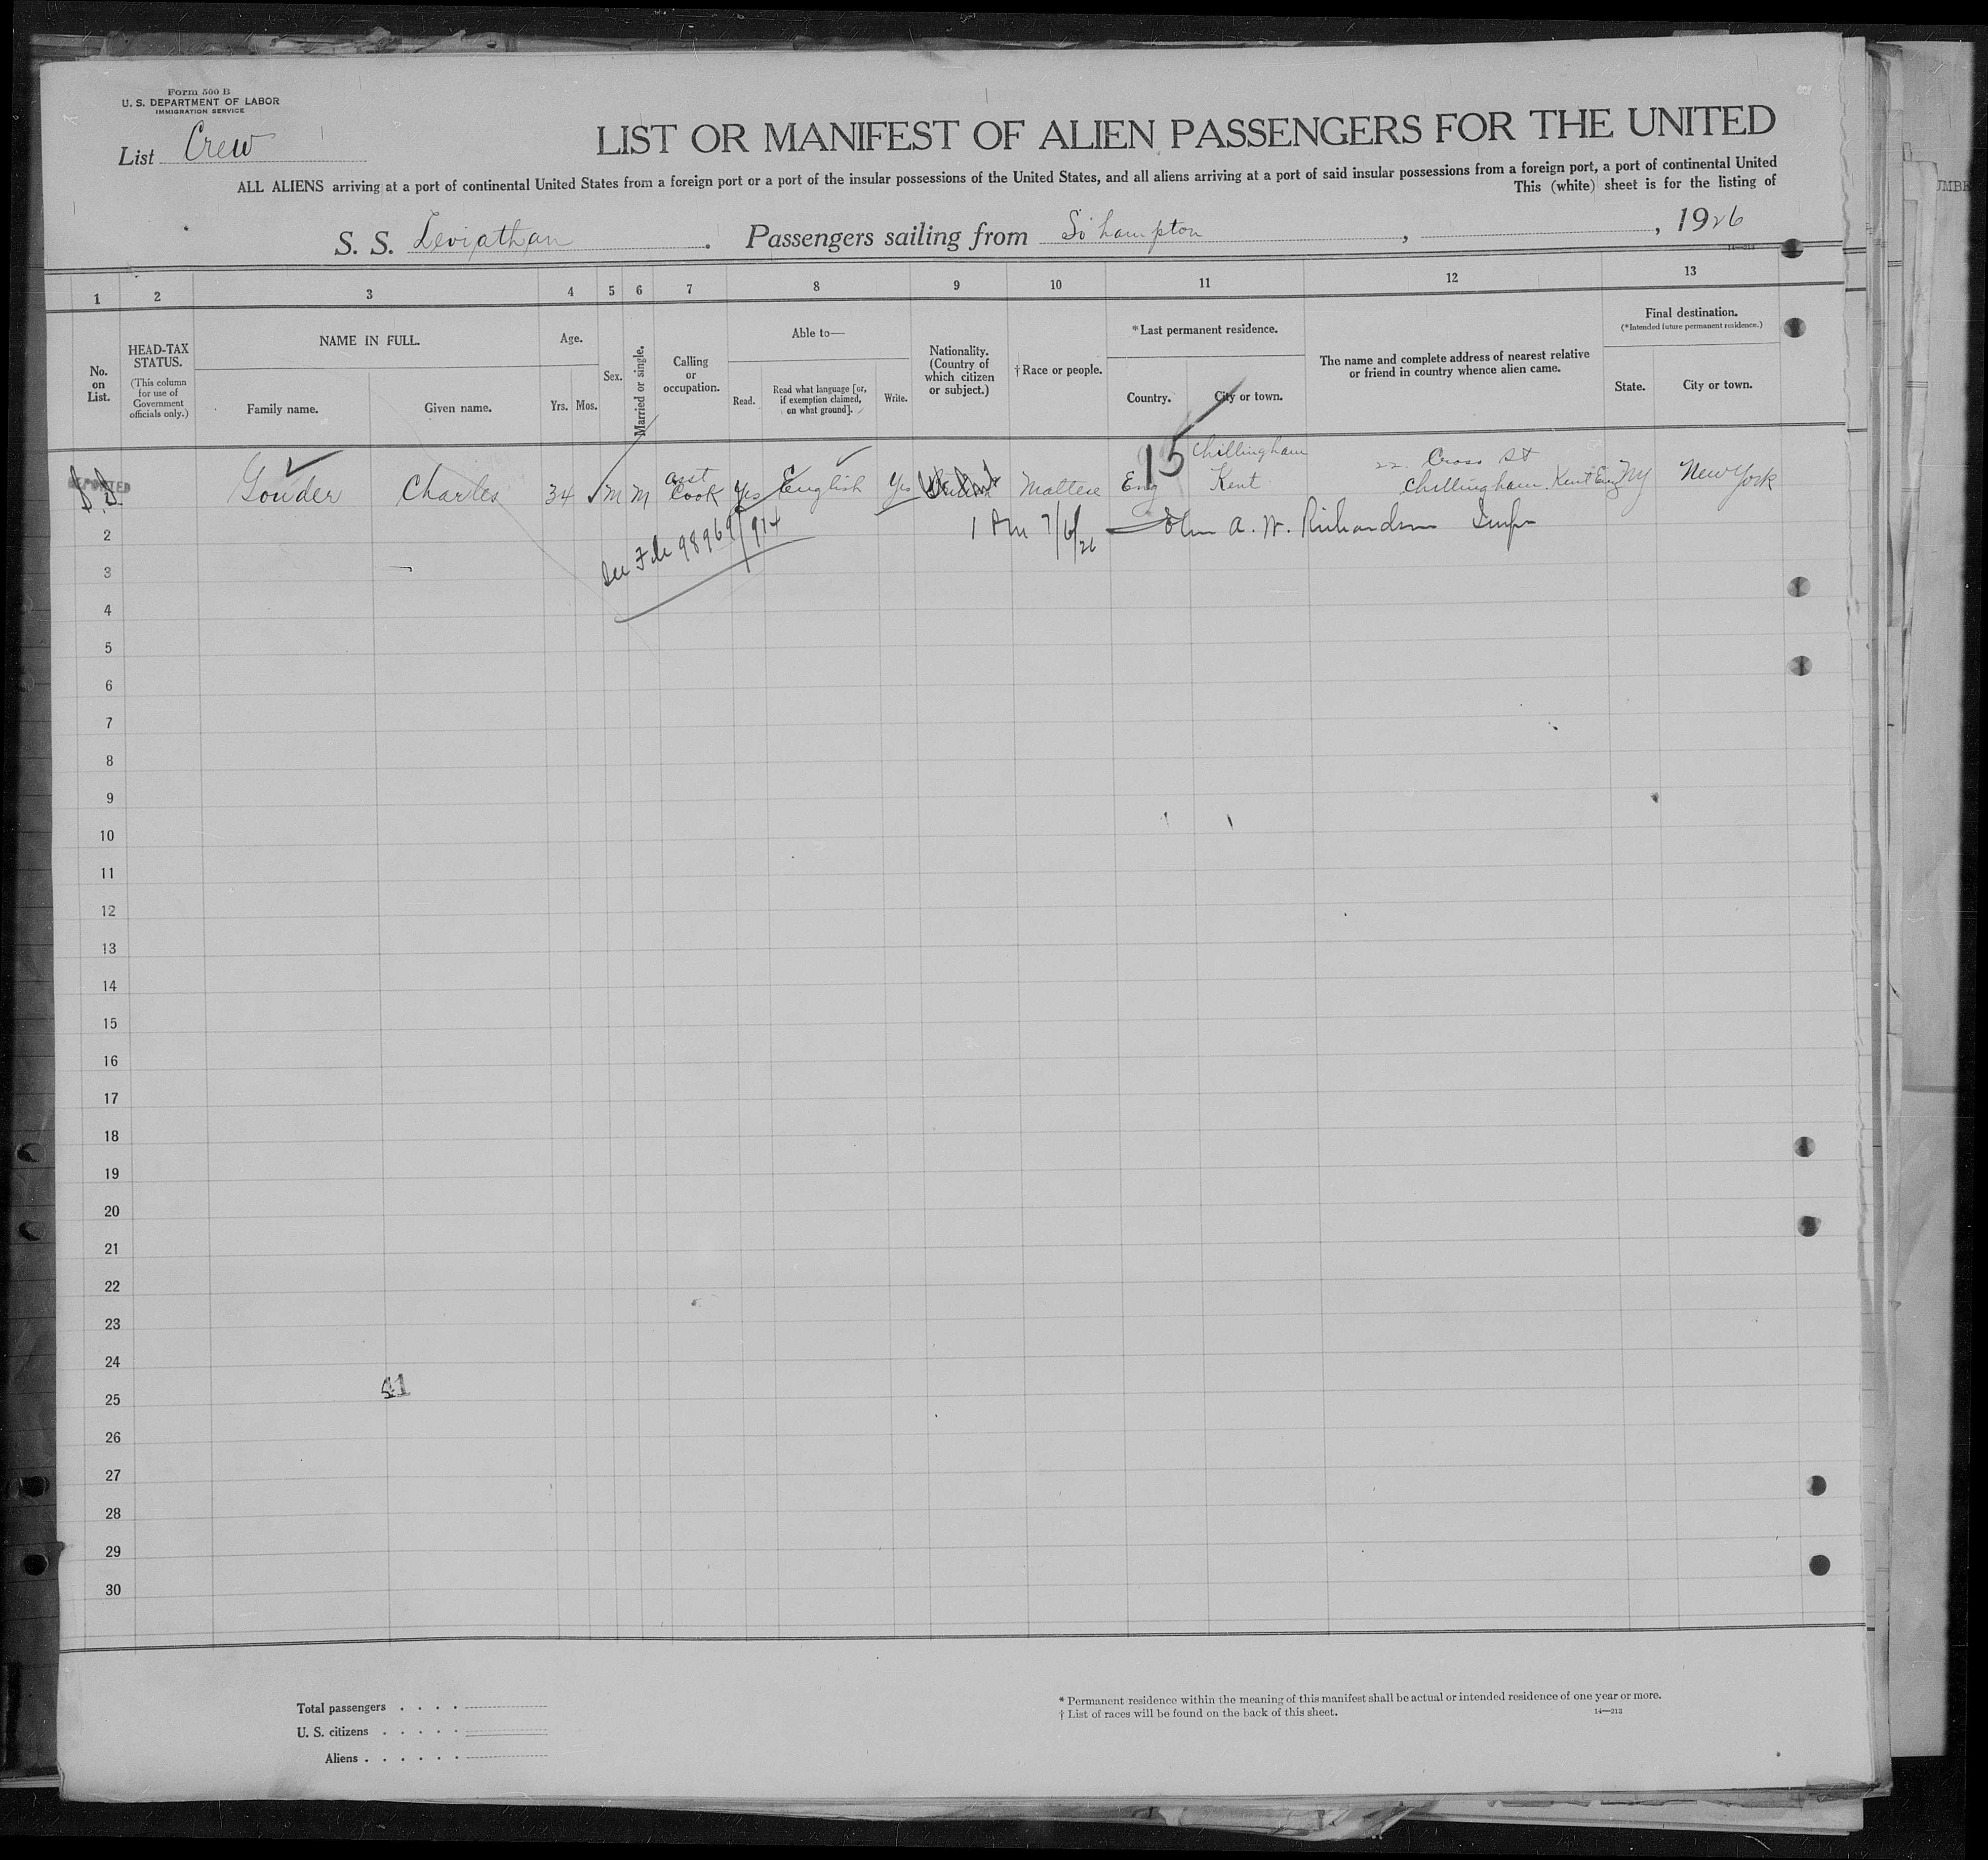 Form 500 B
U. S. DEPARTMENT OF LABOR
IMMIGRATION SERVICE
List Crew
LIST OR MANIFEST OF ALIEN PASSENGERS FOR THE UNITED
ALL ALIENS arriving at a port of continental United States from a foreign port or a port of the insular possessions of the United States, and all aliens arriving at a port of said insular possessions from a foreign port, a port of continental United
This (white) sheet is for the listing of
S. S. Leviathan . Passengers sailing from So'hampton , , 1926
14—213
1 2 3 4 5 6 7 8 9 10 11 12 13
No. on List.
HEAD-TAX STATUS.
(This column for use of Government officials only.)
NAME IN FULL.
Family name. Given name.
Age.
Yrs. Mos.
Sex.
Married or single.
Calling or occupation.
Able to—
Read. Read what language [or, if exemption claimed, on what ground]. Write.
Nationality. (Country of which citizen or subject.)
† Race or people.
* Last permanent residence.
Country. City or town.
The name and complete address of nearest relative or friend in country whence alien came.
Final destination.
(* Intended future permanent residence.)
State. City or town.
15 Chillingham
22 Cross St
DEPORTED Gouder Charles 34 M M asst Cook Yes English Yes Maltese Eng Kent Chillingham Kent Eng NY New York
2 See File 98969/914 7/6/26 A. W. Richardson
3
4
5
6
7
8
9
10
11
12
13
14
15
16
17
18
19
20
21
22
23
24
41
25
26
27
28
29
30
Total passengers . . . .
U. S. citizens . . . . .
Aliens . . . . . .
* Permanent residence within the meaning of this manifest shall be actual or intended residence of one year or more.
† List of races will be found on the back of this sheet.
14—213